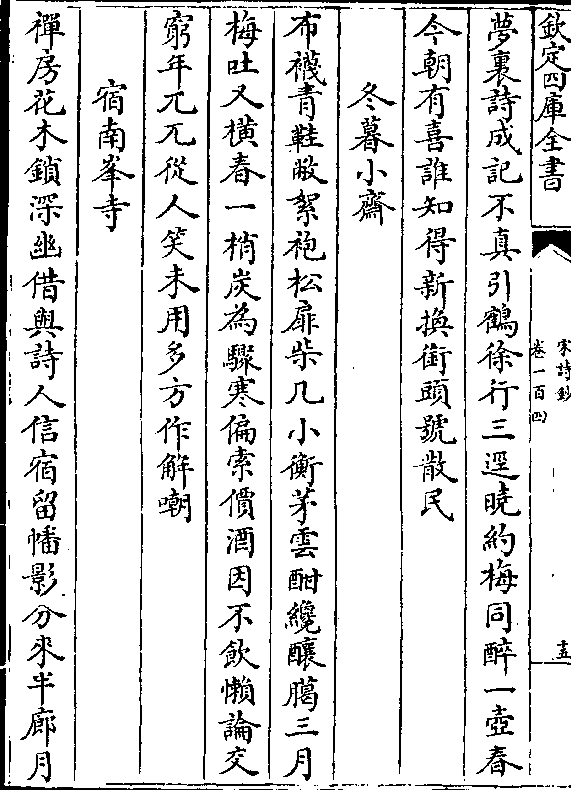 欽定四庫全書
宋詩鈔
卷一百四
十五
夢裏詩成記不真引鶴徐行三逕曉約梅同醉一壺春
今朝有喜誰知得新換銜頭號散民
冬暮小齋
布襪青鞋敝絮袍松扉柴几小衡茅雲酣纔釀臈三月
梅吐又橫春一梢炭為驟寒偏索價酒因不飲懶論交
窮年兀兀從人笑未用多方作解嘲
宿南峯寺
禪房花木鎖深幽借與詩人信宿留幡影分來半廊月